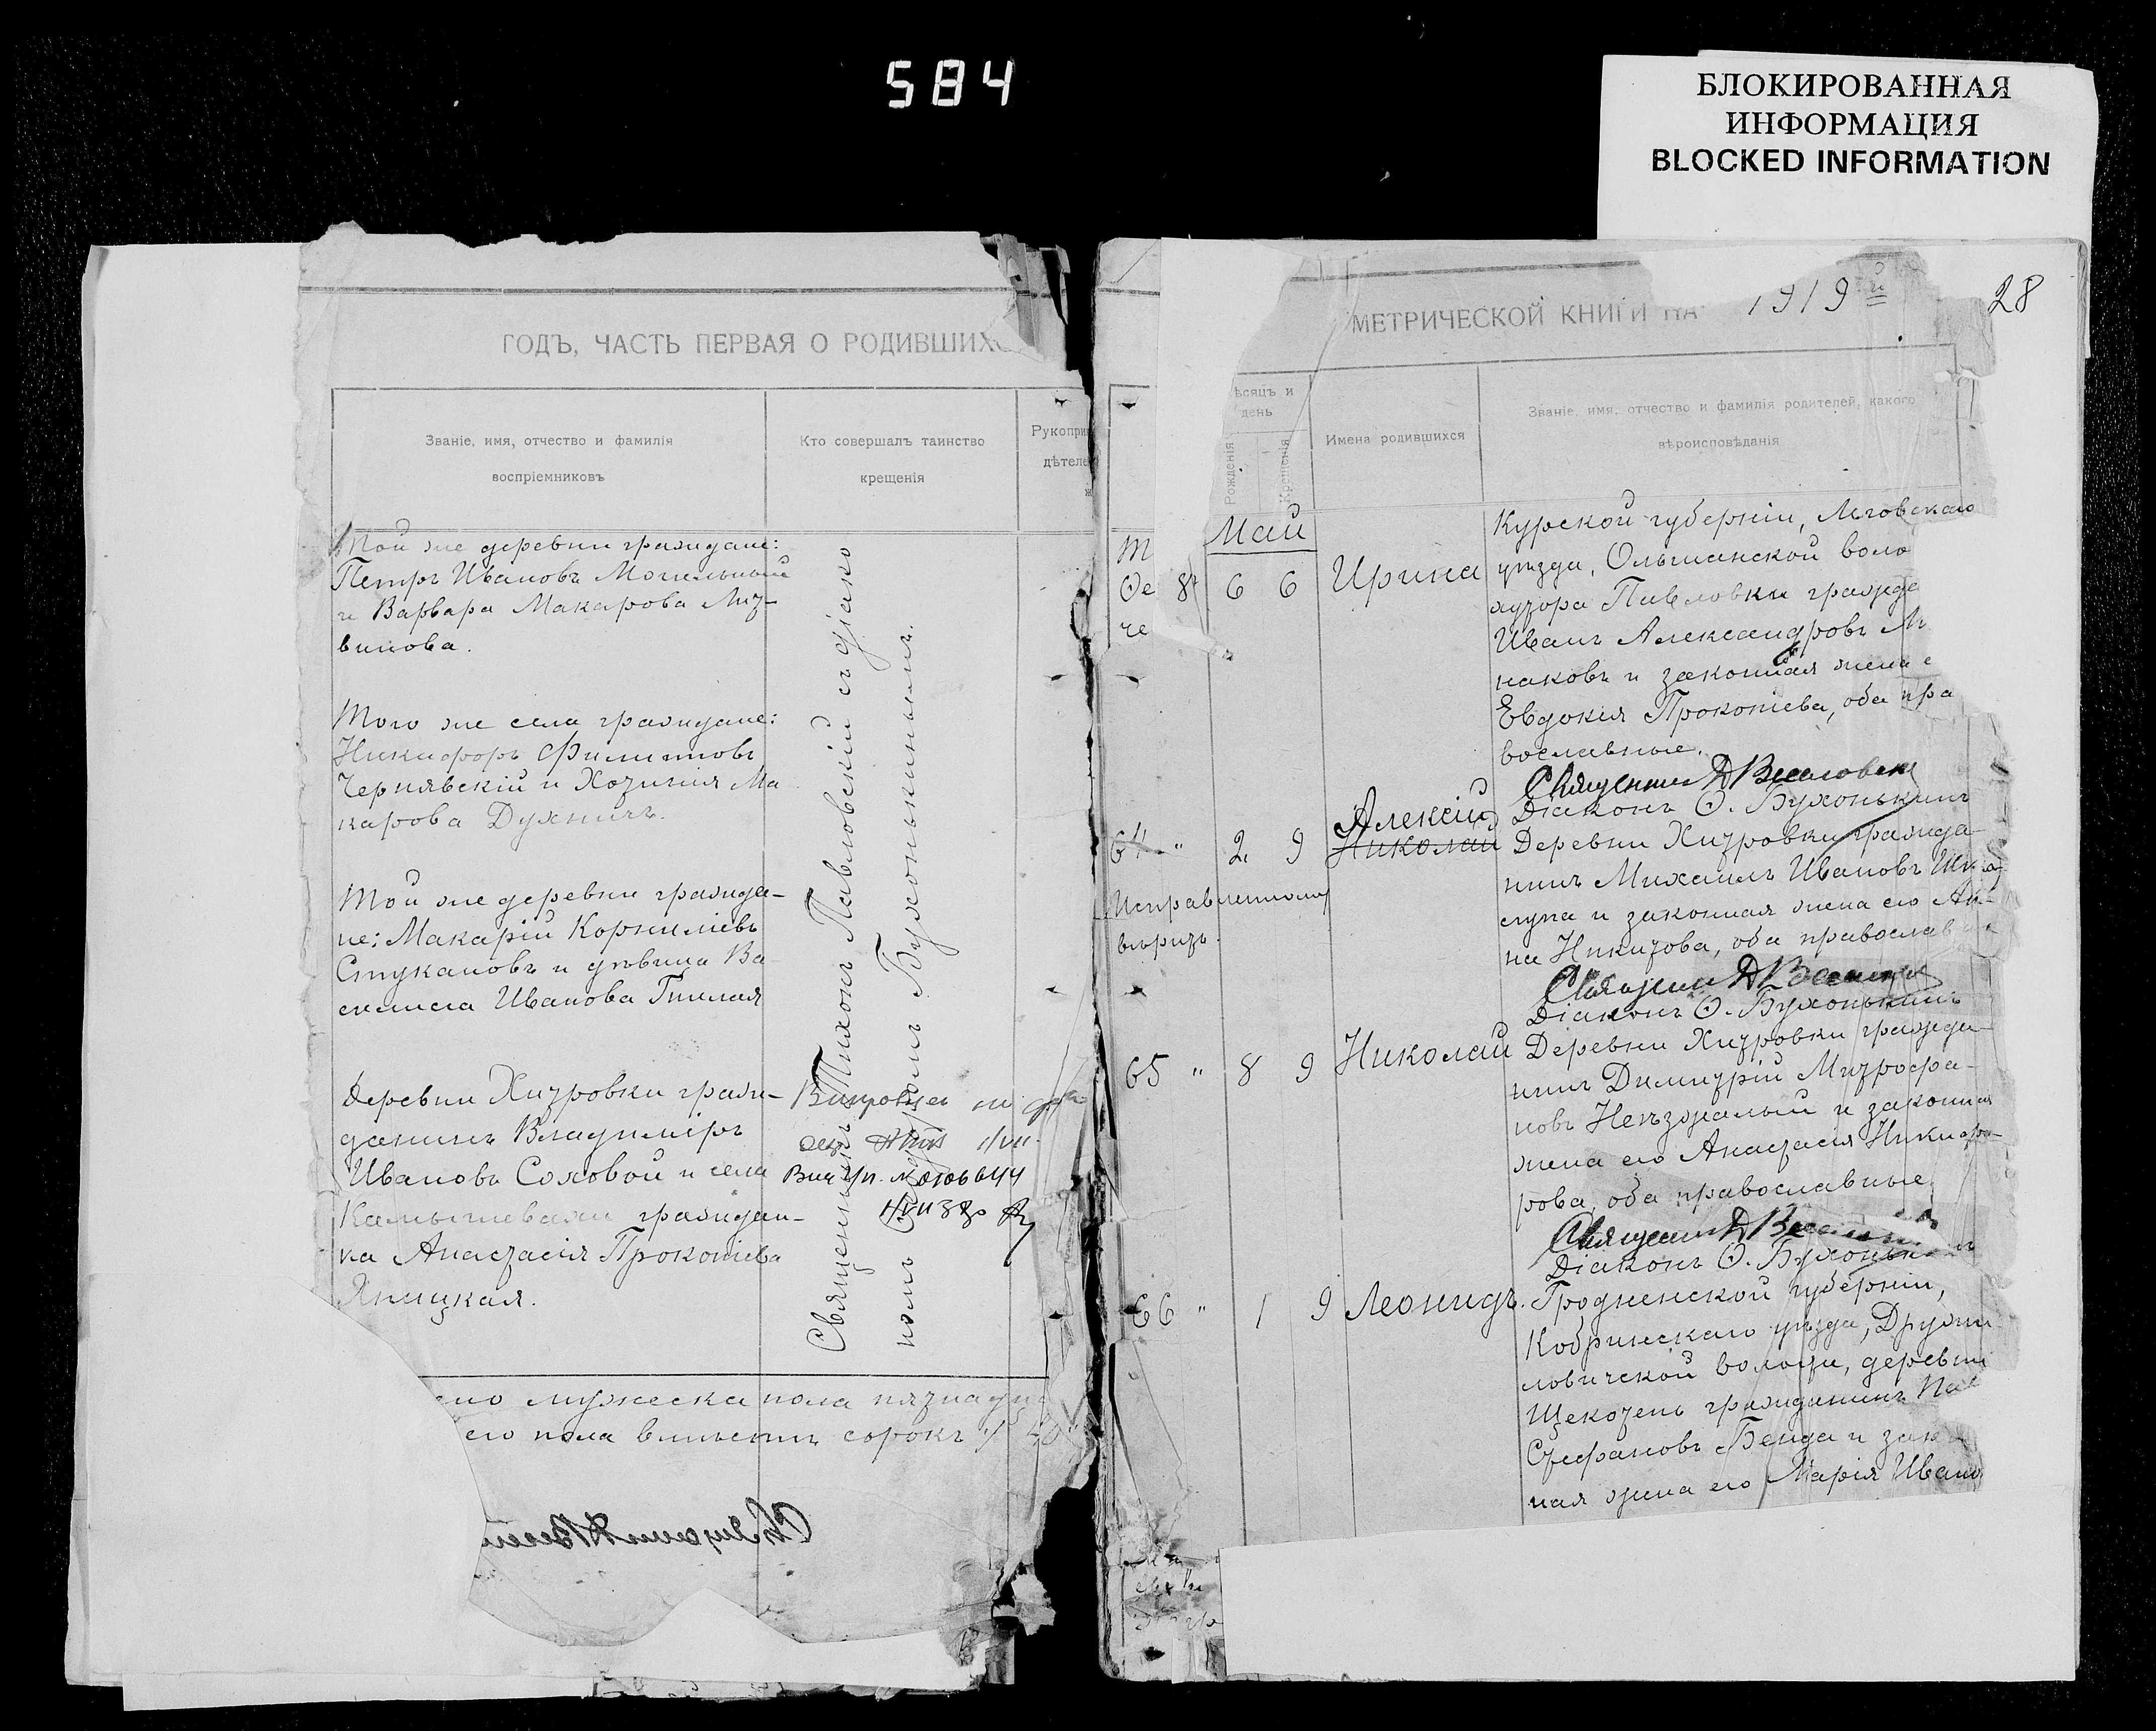 584
БЛОКИРОВАННАЯ
ИНФОРМАЦИЯ
BLOCKED INFORMATION
ГОДЪ, ЧАСТЬ ПЕРВАЯ О РОДИВШИХС
Званіе, имя, отчество и фамилія
воспріемниковъ
Кто совершалъ таинство
крещенія
Рукопри
дѣтеле
ж
Той же деревни граждане:
Петръ Ивановъ Могильный
и Варвара Макарова Лит-
винова.
Того же села граждане:
Никифоръ Филиповъ
Чернявскій и Хотинія Ма
карова Духничъ.
Той же деревни гражда-
не: Макарій Корниліевъ
Стукановъ и дѣвица Ва-
силиса Иванова Гнилая
Деревни Хитровки граж-
данинъ Владиміръ
Ивановъ Соловой и села
Камышевахи граждан-
ка Анастасія Прокопіева
Яницкая.
Священникъ Тихонъ Павловскій съ діако
номъ Ѳеодоромъ Бухонькинымъ.
мужеска пола пятнадца
его пола сорокъ
МЕТРИЧЕСКОЙ КНИГИ НА 1919 й
28
ѣсяцъ и
день
Рожденія
Крещенія
Имена родившихся
Званіе, имя, отчество и фамилія родителей, какого
вѣроисповѣданія
Май
Т
Ѳе
че
6 6 Ирина
Курской губерніи, Льговскаго
уѣзда, Ольшанской воло
хутора Павловки гражда
Иванъ Александровъ М
наковъ и законная жена е
Евдокія Прокопіева, оба пра
вославные.
Діаконъ Ѳ. Бухонькинъ
64 " 2 9 Алексій
Николай
Исправленному
вѣрить.
Деревни Хитровки гражда-
нинъ Михаилъ Ивановъ
слупа и законная жена его Ан-
на Никитова, оба православ
Діаконъ Ѳ. Бухонькинъ
65 " 8 9 Николай
Деревни Хитровки гражда-
нинъ Димитрій Митрофа-
новъ Неѣзжалый и законная
жена его Анастасія Никифо-
рова, оба православные
Діаконъ Ѳ. Бухонькинъ
66 " 1 9 Леонидъ.
Гродненской губерніи,
Кобринскаго уѣзда, Дружи
ловичской волости, деревни
Щекотень гражданинъ Пав
Стефановъ Бенда и зак
ная жена его Марія Ивано